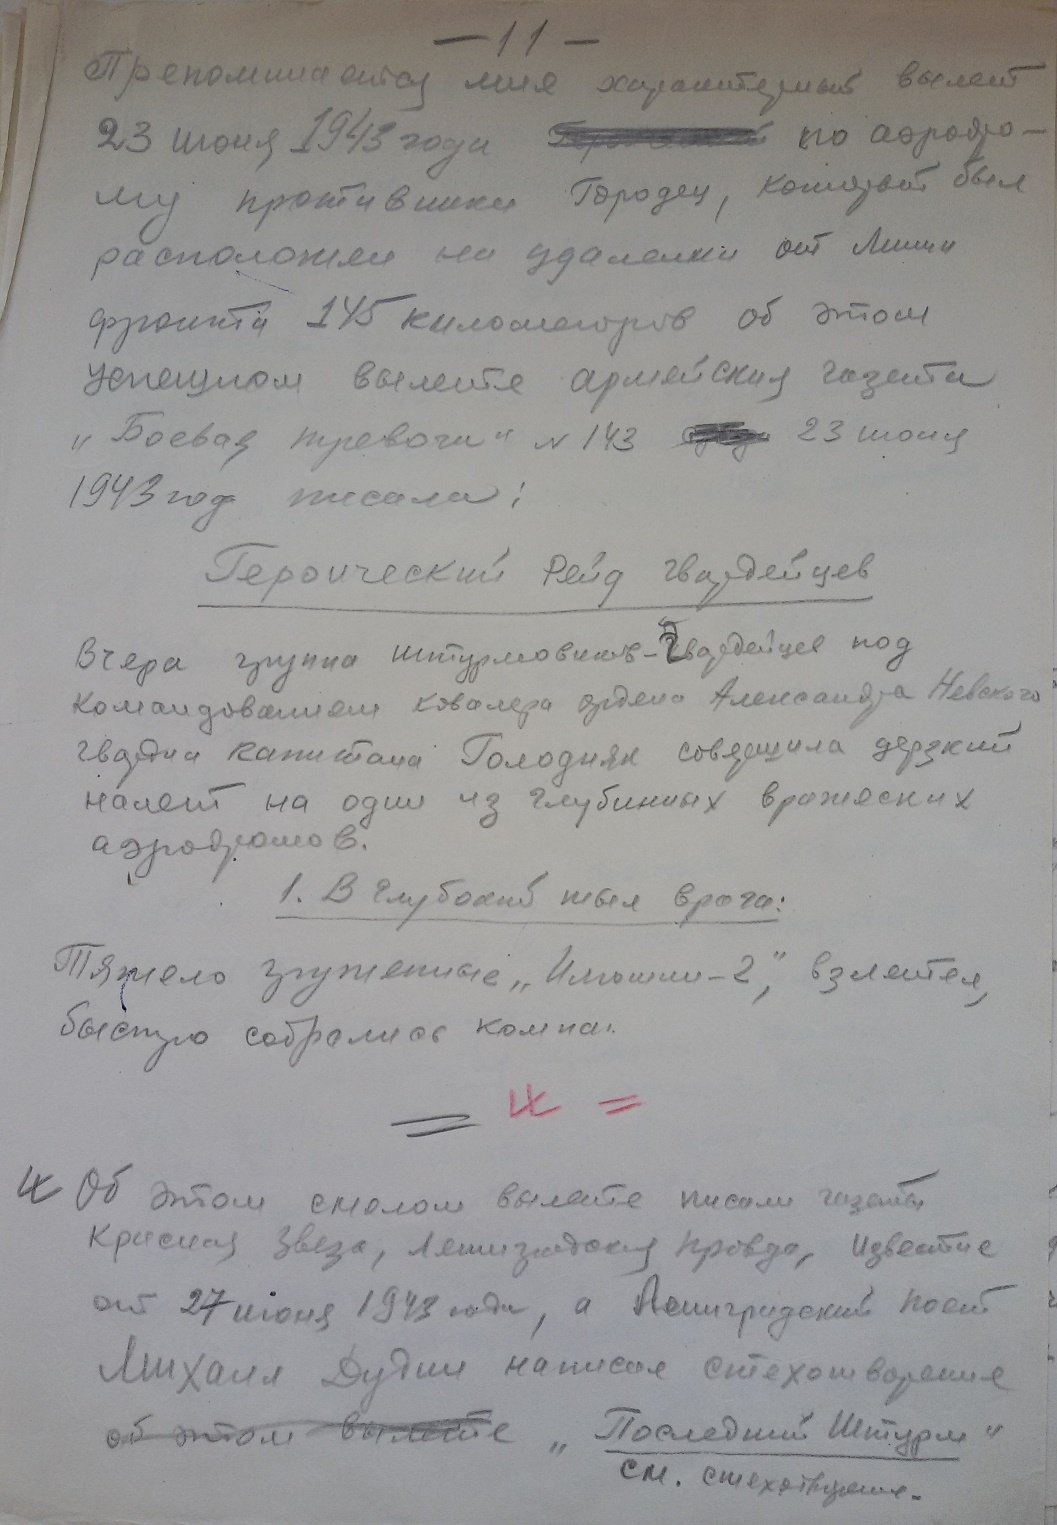 — 11 —
Препоминается мне характерный вылет
23 июня 1943 года по аэродро-
му противника Городец, который был
расположен на удалении от Линии
фронта 145 километров об этом
успешном вылете армейская газета
„Боевая тревога" N 143 23 июня
1943 год писала:
Героический Рейд гвардейцев
Вчера группа штурмовиков-Гвардейцев под
командованием кавалера ордена Александра Невского
гвардии капитана Голодняк совершила дерзкий
налет на один из глубинных вражеских
аэродромов.
1. В глубокий тыл врага:
Тяжело груженные „Илюшин-2", взлетев,
быстро собрались
= Ц =
Ц Об этом смелом вылете писали газеты
Красная Звезда, Ленинградская правда, Известие
от 27 июня 1943 года, а Ленинградский поет
Михаил Дудин написал стехотворение
об этом вылете „Последний Штурм"
см. стехотворение.